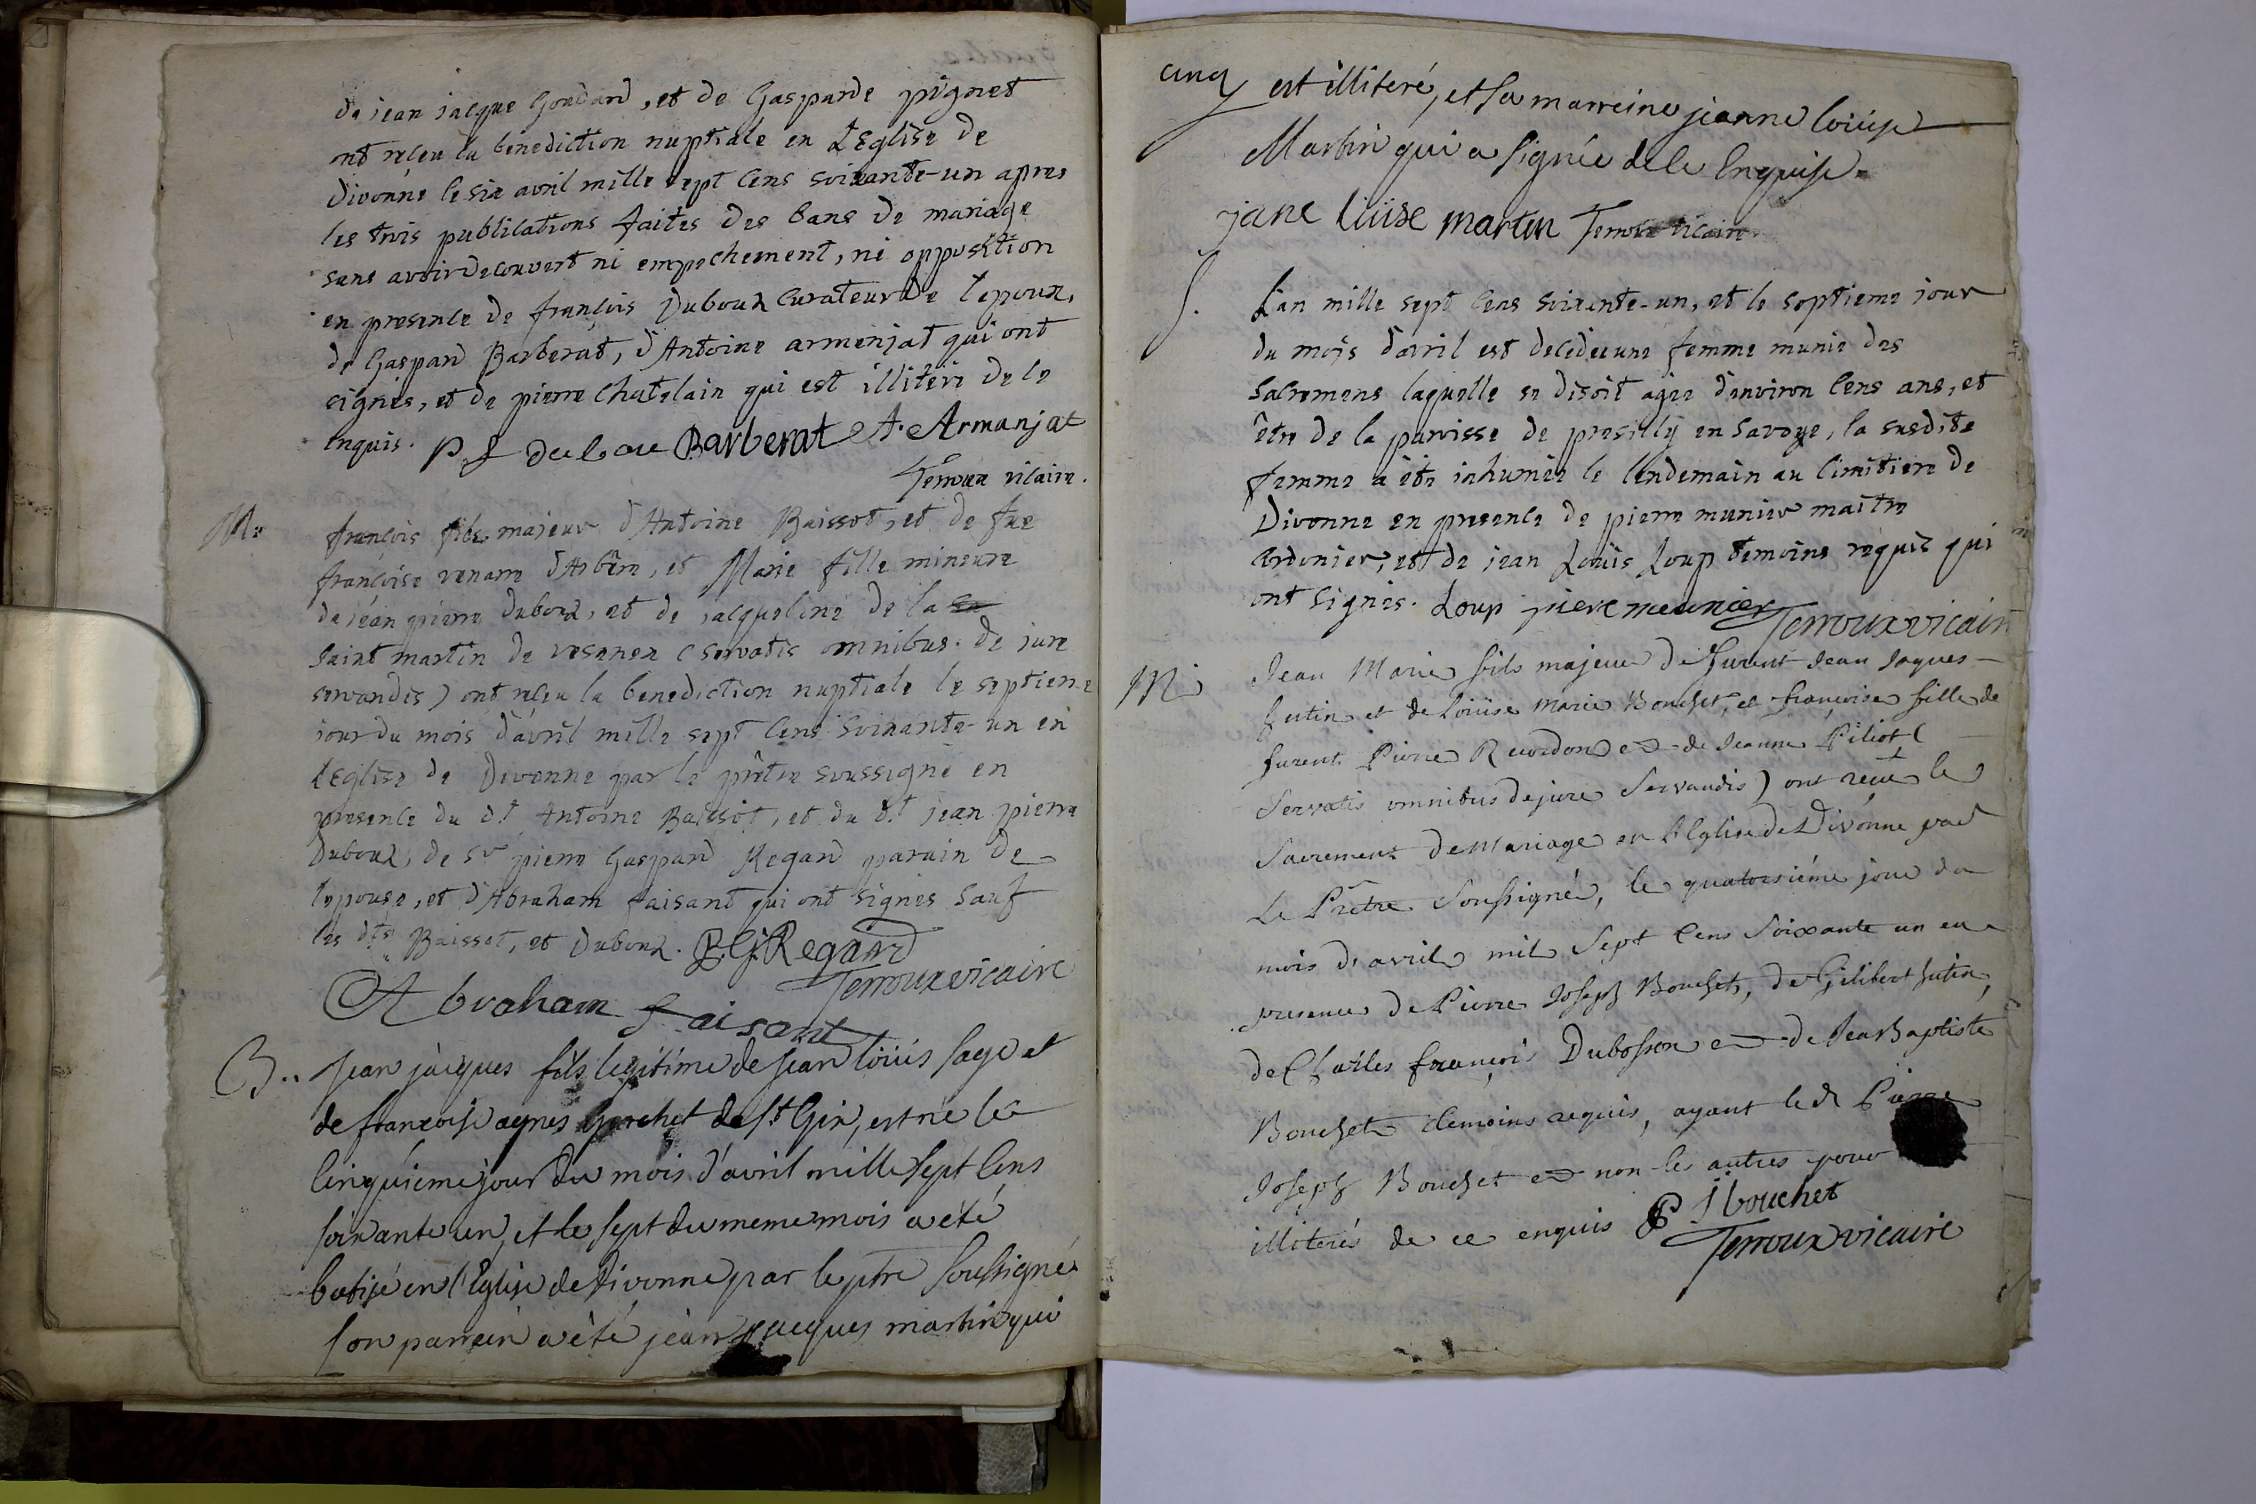 de jean jacque Goudard, et de Gasparde pignet
ont reçeu la benediction nuptiale en L'Eglise de
Divonne le six avril mille sept cens soixante-un apres
les trois publications faites des bans de mariage
sans avoir decouvert ni empechement, ni opposition
en presence de françois Duboux curateur de l'epoux,
de Gaspard Barberat, d'Antoine armenjat qui ont
signés, et de pierre chatelain qui est illiteré de le
enquis. P f dubou Barberat A. Armanjat
Terroux vicaire.
M. françois fils majeur d'Antoine Baissot, et de fue
françoise venarre d'Arbêre, et Marie fille mineure
de jéan pierre Duboux, et de jacqueline de la
saint martin de vesenex (servatis omnibus de jure
servandis) ont reçeu la benediction nuptiale le septieme
jour du mois d'avril mille sept cens soixante-un en
l'Eglise de Divonne par le prêtre soussigné en
presence du dt Antoine Baissot, et du dt jean pierre
Duboux, de Sr pierre Gaspard Regard parain de
l'epouse, et d'Abraham faisant qui ont signés sauf
les dts Baissot, et Duboux. P. G. Regard
Terroux vicaire
Abraham faisant
B.. Jean jacques fils legitime de jean loüis sage et
de françoise agnes Gorchet de St Gix, est né le
cinquiême jour du mois d'avril mille sept cens
soixante un, et le sept du meme mois a été
batisé en l'Eglise de Divonne par le ptre soussigné
son parrein a êté jean jacques martin qui
cinq est illiteré, et sa marreine jeanne loüise
Martin qui a signée de le Enquise.
jane luïse martin Terroux vicaire.
S. L'an mille sept cens soixante-un, et le septieme jour
du mois d'avril est decedée une femme munie des
sacremens laquelle se disoit agee d'environ cens ans, et
être de la paroisse de presilly en savoye, la susdite
femme a été inhumée le lendemain au cimitiere de
Divonne en presence de pierre munier maitre
cordonier, et de jean Loüis Loup temoins requis qui
ont signés. Loup piere meunier Terroux vicaire
M. Jean Marie fils majeur de furent Jean Jaques
hutin et de Loüise Marie Bouchet, et françoise fille de
furent Pierre Recordon et de Jeanne Piliot (
Servatis omnibus de jure Servandis) ont reçeu le
Sacrement de Mariage en l'Eglise de Divonne par
Le Prêtre Soussigné, le quatorsiéme jour du
mois d'avril mil Sept Cens Soixante un en
presence de Pierre Joseph Bouchet, de Gilibert hutin,
de Charles françois Dubosson et de Jean Baptiste
Bouchet temoins requis, ayant led Pierre
Joseph Bouchet et non les autres pour
illiterés de ce enquis P J bouchet
Terroux vicaire